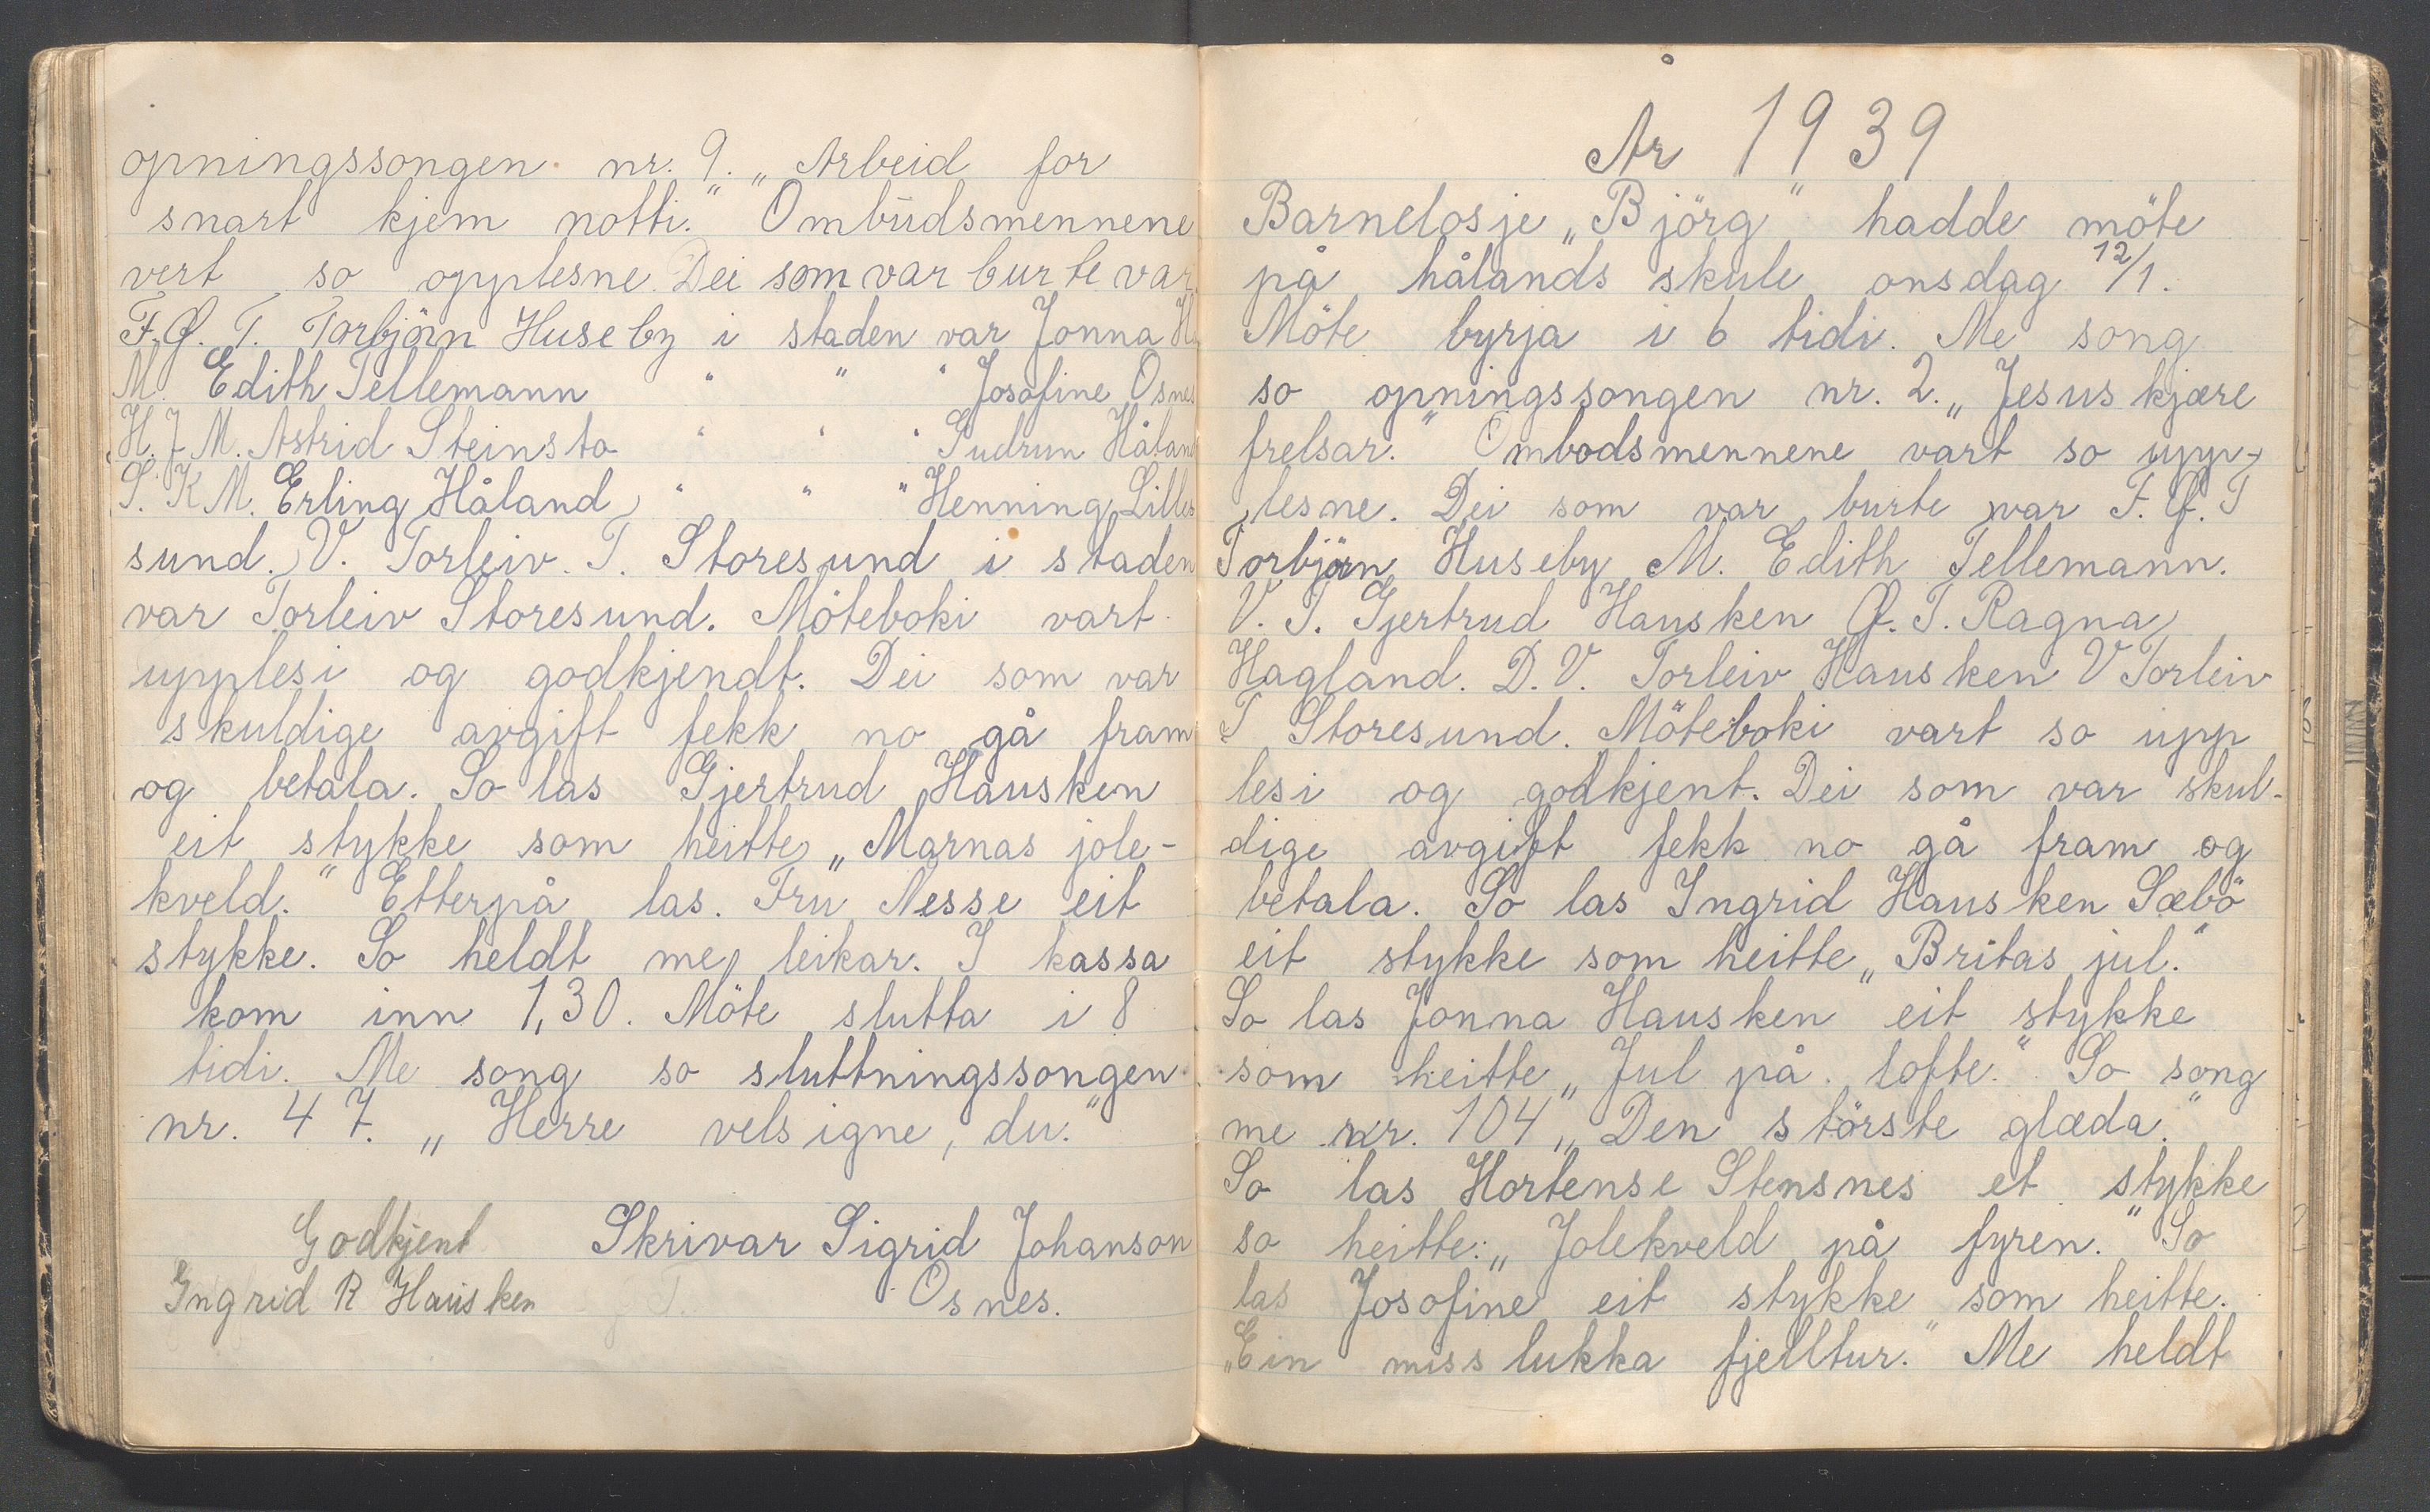 opningssongen nr. 9. „Arbeid for
snart kjem notti." Ombudsmennene
vert so opplesne. Dei som var burte var
F.Ø.T. Torbjörn Huseby i staden var Jonna
M. Edith Tellemann " " " Josofine Osnes
H.J.M. Astrid Steinsto " " " Gudrun Håland
S.K.M. Erling Håland " " " Henning Lilles
sund. V. Torleiv. T. Storesund i staden
var Torleiv Storesund. Möteboki vart
upplesi og godkjendt. Dei som var
skuldige avgift fekk no gå fram
og betala. So las Gjertrud Hausken
eit stykke som heitte „Marnas jole-
kveld." Etterpå las. Fru Nesse eit
stykke. So heldt me leikar. I kassa
kom inn 1,30. Möte slutta i 8
tidi. Me song so sluttningssongen
nr. 47. „Herre velsigne, du."
Godkjent Skrivar Sigrid Johanson
Ingrid R Hausken Osnes.
År 1939
Barnelosje „Björg" hadde möte
på hålands skule onsdag 12/1.
Möte byrja i 6 tidi. Me song
so opningssongen nr. 2. „Jesus kjære
frelsar." Ombodsmennene vart so upp-
lesne. Dei som var burte var F.Ø.T
Torbjörn Huseby M. Edith Tellemann.
V.T. Gjertrud Hausken Ø.T. Ragna
Hagland. D.V. Torleiv Hausken V Torleiv
T Storesund. Möteboki vart so upp
lesi og godkjent. Dei som var skul-
dige avgift fekk no gå fram og
betala. So las Ingrid Hausken Sæbö
eit stykke som heitte „Britas jul."
So las Jonna Hausken eit stykke
som heitte „Jul på lofte." So song
me nr. 104 „Den störste glæda."
So las Hortense Stensnes et stykke
so heitte: „Jolekveld på fyren." So
las Josofine eit stykke som heitte.
„Ein miss lukka fjelltur." Me heldt